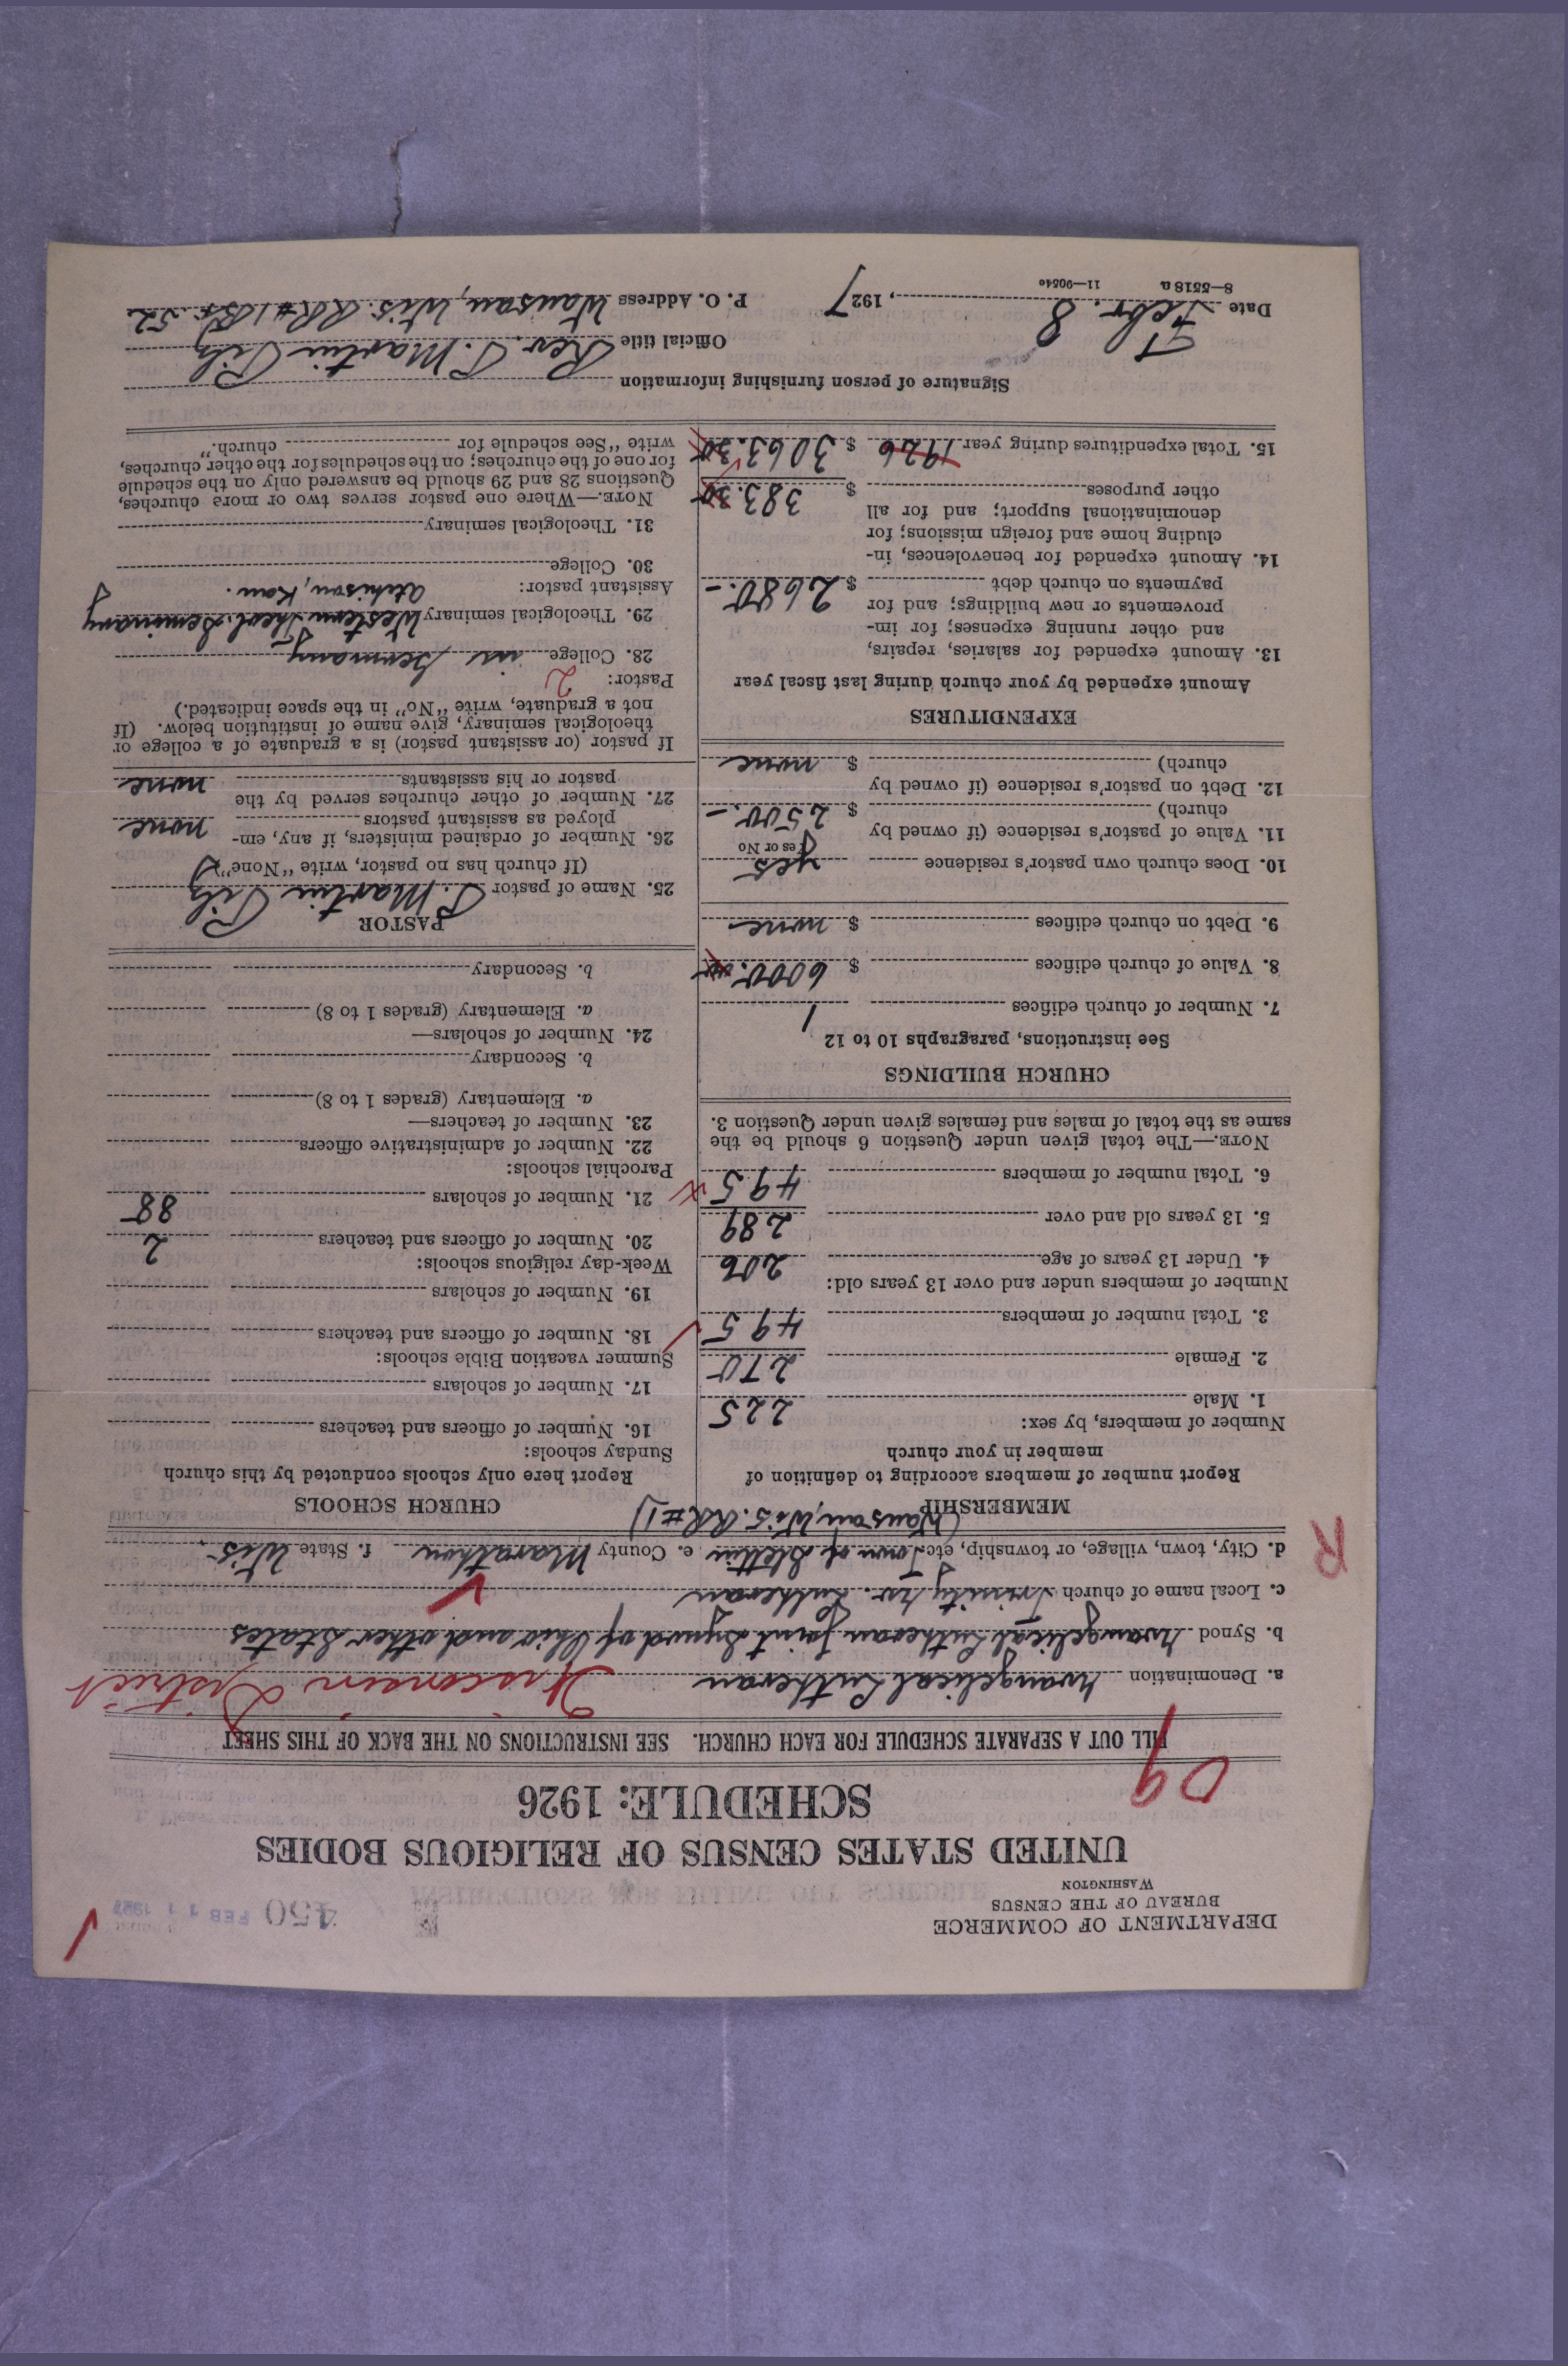 DEPARTMENT OF COMMERCE
BUREAU OF THE CENSUS
WASHINGTON
450 FEB 11 1927
UNITED STATES CENSUS OF RELIGIOUS BODIES
SCHEDULE: 1926
09
FILL OUT A SEPARATE SCHEDULE FOR EACH CHURCH. SEE INSTRUCTIONS ON THE BACK OF THIS SHEET
a. Denomination Evangelical Lutheran Wisconsin District
b. Synod Evangelical Lutheran Joint Synod of Ohio and other States
c. Local name of church Trinity Ev. Lutheran
R
d. City, town, village, or township, etc. Town of Stettin e. County Marathon f. State Wis.
(Wausau, Wis. RR #1)
MEMBERSHIP
Report number of members according to definition of
member in your church
Number of members, by sex:
1. Male 225
2. Female 270
3. Total number of members 495
Number of members under and over 13 years old:
4. Under 13 years of age 206
5. 13 years old and over 289
6. Total number of members 495
NOTE.—The total given under Question 6 should be the
same as the total of males and females given under Question 3.
CHURCH BUILDINGS
See instructions, paragraphs 10 to 12
7. Number of church edifices 1
8. Value of church edifices $ 6000.00
9. Debt on church edifices $ none
10. Does church own pastor's residence yes
Yes or No
11. Value of pastor's residence (if owned by
church) $ 2500.–
12. Debt on pastor's residence (if owned by
church) $ none
EXPENDITURES
Amount expended by your church during last fiscal year
13. Amount expended for salaries, repairs,
and other running expenses; for im-
provements or new buildings; and for
payments on church debt $ 2680.–
14. Amount expended for benevolences, in-
cluding home and foreign missions; for
denominational support; and for all
other purposes $ 383.30
15. Total expenditures during year 1926 $ 3063.30
CHURCH SCHOOLS
Report here only schools conducted by this church
Sunday schools:
16. Number of officers and teachers
17. Number of scholars
Summer vacation Bible schools:
18. Number of officers and teachers
19. Number of scholars
Week-day religious schools:
20. Number of officers and teachers 2
21. Number of scholars 88
Parochial schools:
22. Number of administrative officers
23. Number of teachers—
a. Elementary (grades 1 to 8)
b. Secondary
24. Number of scholars—
a. Elementary (grades 1 to 8)
b. Secondary
PASTOR
25. Name of pastor P. Martin Pilz
(If church has no pastor, write "None")
26. Number of ordained ministers, if any, em-
ployed as assistant pastors none
27. Number of other churches served by the
pastor or his assistants none
If pastor (or assistant pastor) is a graduate of a college or
theological seminary, give name of institution below. (If
not a graduate, write "No" in the space indicated.)
Pastor: 2
28. College in Germany
29. Theological seminary Western Theol. Seminary
Atchison, Kan.
Assistant pastor:
30. College
31. Theological seminary
NOTE.—Where one pastor serves two or more churches,
Questions 28 and 29 should be answered only on the schedule
for one of the churches; on the schedules for the other churches,
write "See schedule for church."
Signature of person furnishing information
Official title Rev. P. Martin Pilz
Date Febr. 8, 1927 P. O. Address Wausau, Wis. RR #1 Bx. 52
8—5518 a 11—9054